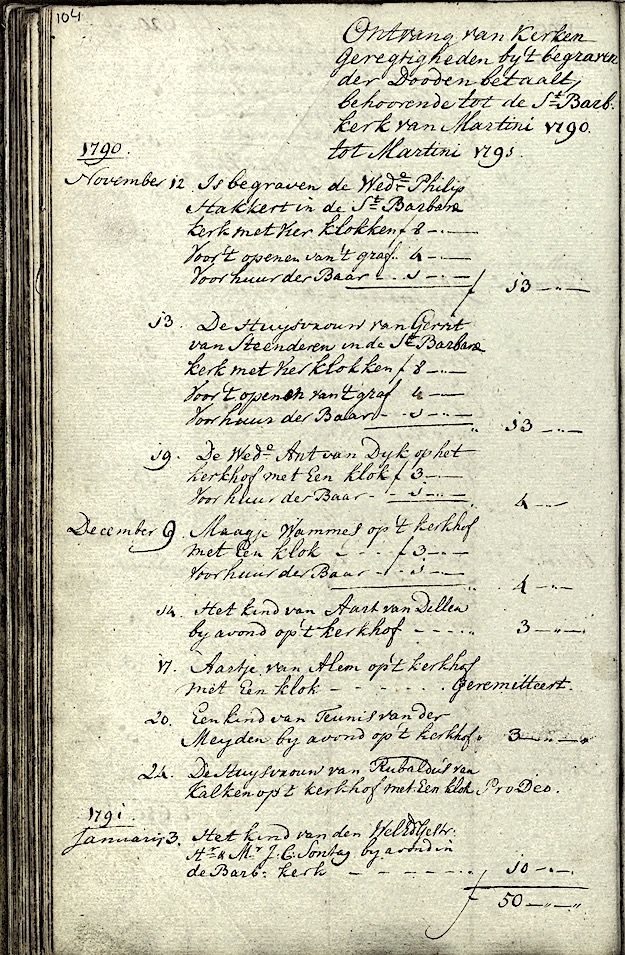 104
Ontvang van Kerken
Geregtigheden by 't begraven
der Dooden betaalt,
behoorende tot de St. Barb.
kerk van Martini 1790.
tot Martini 1791.
1790.
November 12 Is begraven de Wede. Philip
Hakkert in de St. Barbara
kerk met vier klokken f 8 -..-
Voor 't openen van 't graf .. 4 -..-
Voor huur der Baar - .. 1 -..- f 13 -..-
13. De Huysvrouw van Gerrit
van Steenderen in de St. Barbara
kerk met vier klokken f 8 -..-
Voor 't openen van 't graf 4 -..-
Voor huur der Baar - .. 1 -..- " 13 -..-
19. De Wede. Ant van Dyk op het
kerkhof met Een klok f 3 -..-
Voor huur der Baar - .. 1 -..- " 4 -..-
December 9. Maagje Wammes op 't kerkhof
met Een klok - - - f 3 -..-
Voor huur der Baar - .. 1 -..- " 4 -..-
14. Het kind van Aart van Dellen
by avond op 't kerkhof - - - - 3 -..-
17. Aartje van Alem op 't kerkhof
met Een klok - - - - - . Geremitteert.
20. Een kind van Teunis van der
Meyden by avond op 't kerkhof " 3 -..-
24. De Huysvrouw van Rubaldus van
Kalken op 't kerkhof met Een klok Pro Deo.
1791.
January 3. Het kind van den
Hr. & Mr. J. C. Sontag by avond in
de Barb. kerk - - - - - " 10 -..-
f 50 -..-